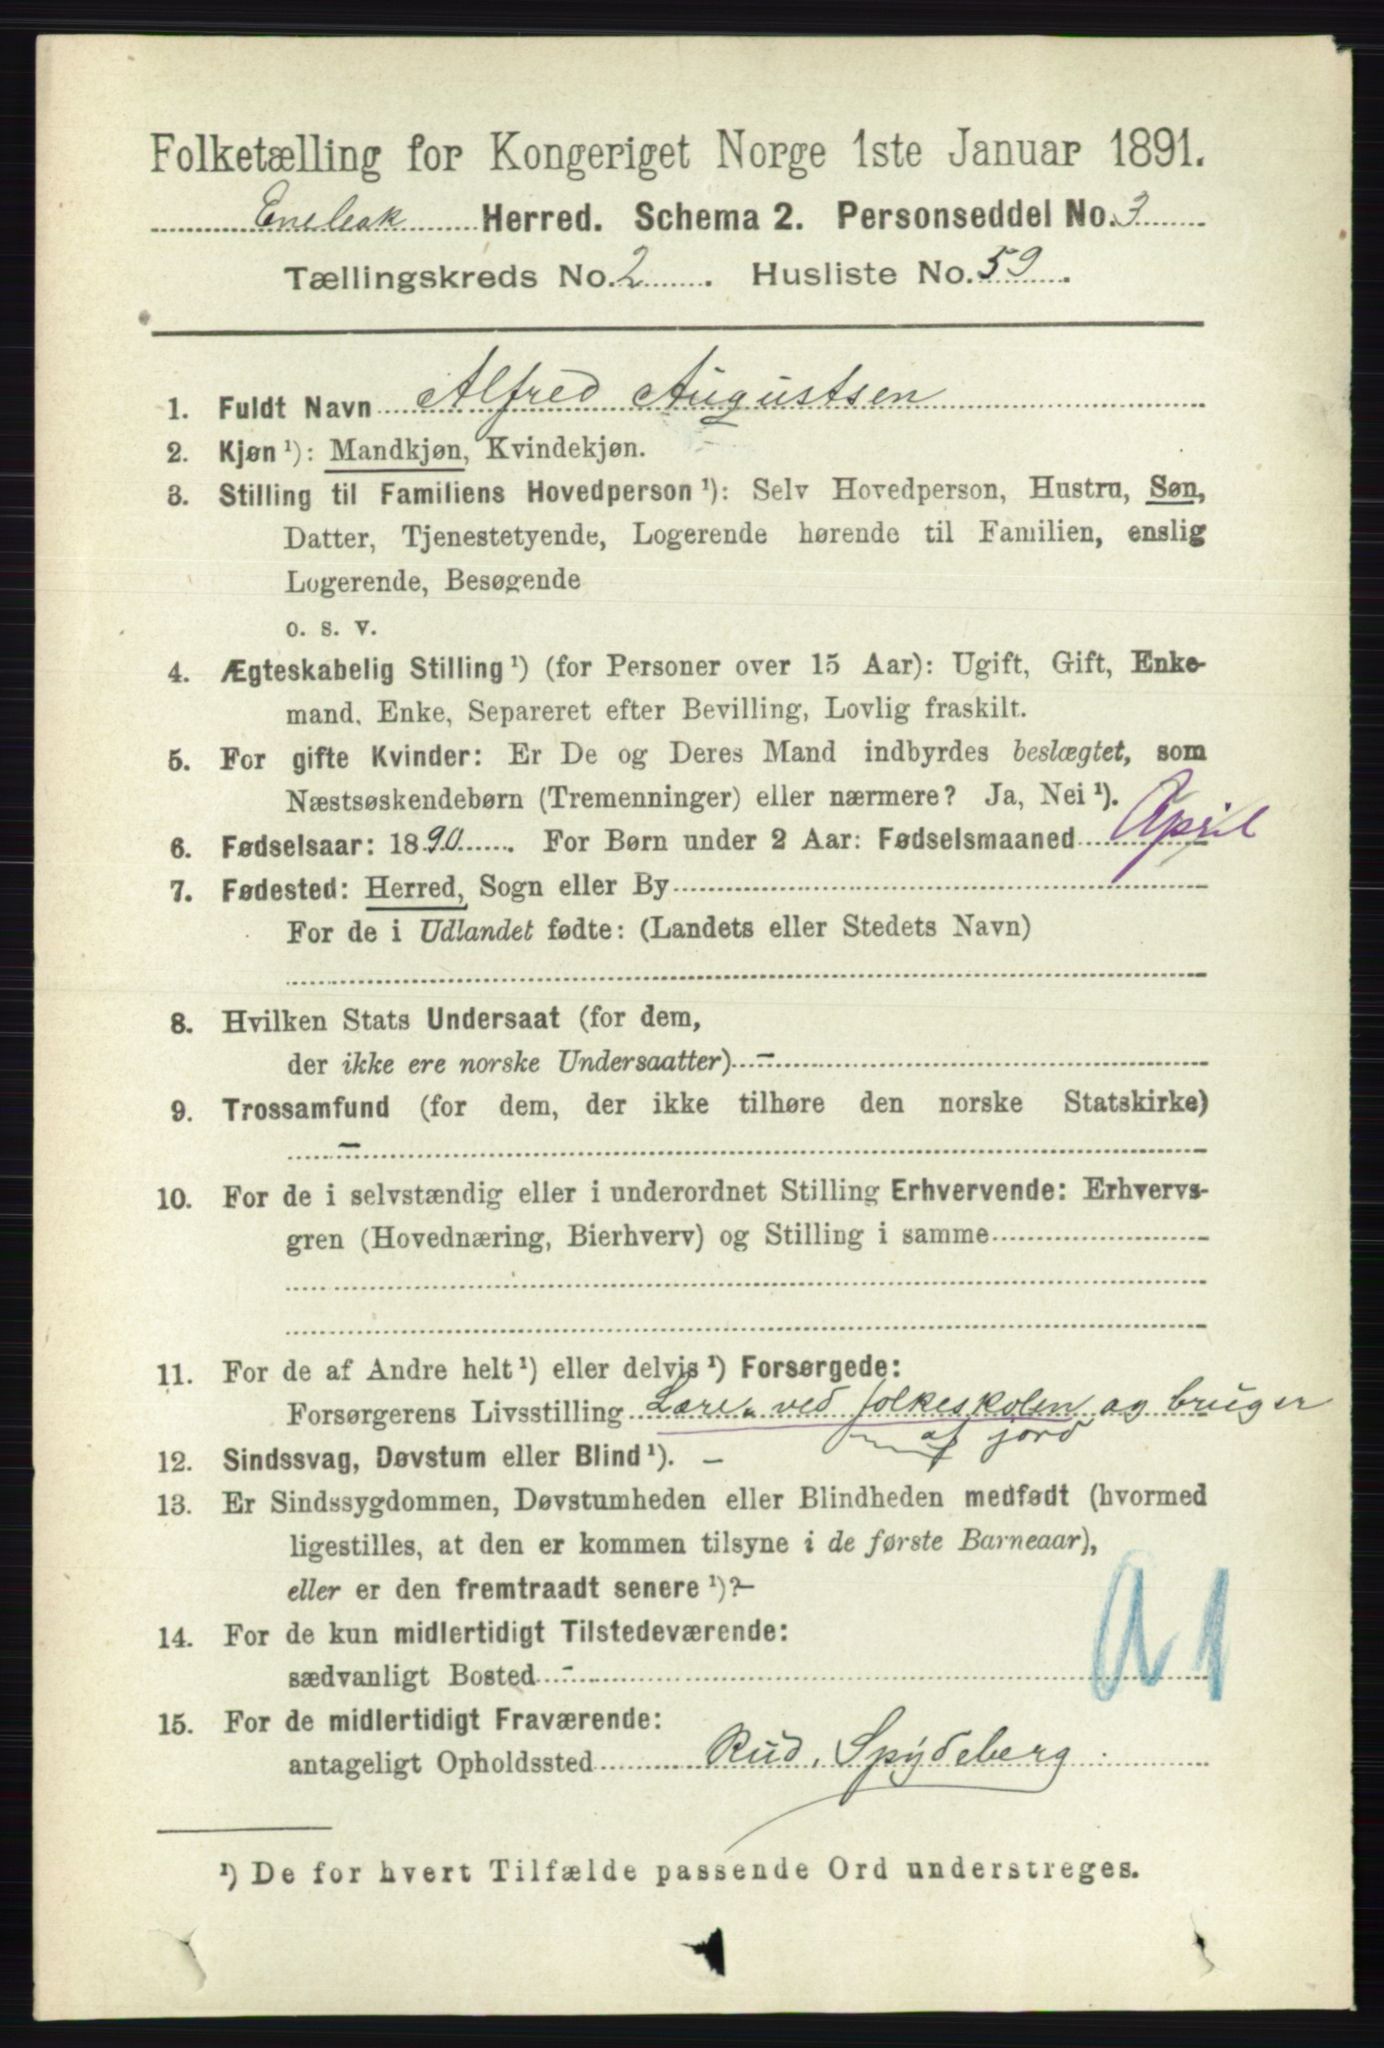 Folketælling for Kongeriget Norge 1ste Januar 1891.
Enebak Herred. Schema 2. Personseddel No. 3
Tællingskreds No. 2. Husliste No. 59.
1. Fuldt Navn Alfred Augustsen
2. Kjøn ¹): Mandkjøn, Kvindekjøn.
3. Stilling til Familiens Hovedperson ¹): Selv Hovedperson, Hustru, Søn,
Datter, Tjenestetyende, Logerende hørende til Familien, enslig
Logerende, Besøgende
o. s. v.
4. Ægteskabelig Stilling ¹) (for Personer over 15 Aar): Ugift, Gift, Enke-
mand, Enke, Separeret efter Bevilling, Lovlig fraskilt.
5. For gifte Kvinder: Er De og Deres Mand indbyrdes beslægtet, som
Næstsøskendebørn (Tremenninger) eller nærmere? Ja, Nei ¹).
6. Fødselsaar: 1890. For Børn under 2 Aar: Fødselsmaaned April
7. Fødested: Herred, Sogn eller By
For de i Udlandet fødte: (Landets eller Stedets Navn)
8. Hvilken Stats Undersaat (for dem,
der ikke ere norske Undersaatter) –
9. Trossamfund (for dem, der ikke tilhøre den norske Statskirke)
–
10. For de i selvstændig eller i underordnet Stilling Erhvervende: Erhvervs-
gren (Hovednæring, Bierhverv) og Stilling i samme
11. For de af Andre helt ¹) eller delvis ¹) Forsørgede:
Forsørgerens Livsstilling Lærer ved folkeskolen og bruger
af jord
12. Sindssvag, Døvstum eller Blind ¹). –
13. Er Sindssygdommen, Døvstumheden eller Blindheden medfødt (hvormed
ligestilles, at den er kommen tilsyne i de første Barneaar),
eller er den fremtraadt senere ¹)? –
14. For de kun midlertidigt Tilstedeværende:
sædvanligt Bosted –
a 1
15. For de midlertidigt Fraværende:
antageligt Opholdssted Rud, Spydeberg
¹) De for hvert Tilfælde passende Ord understreges.